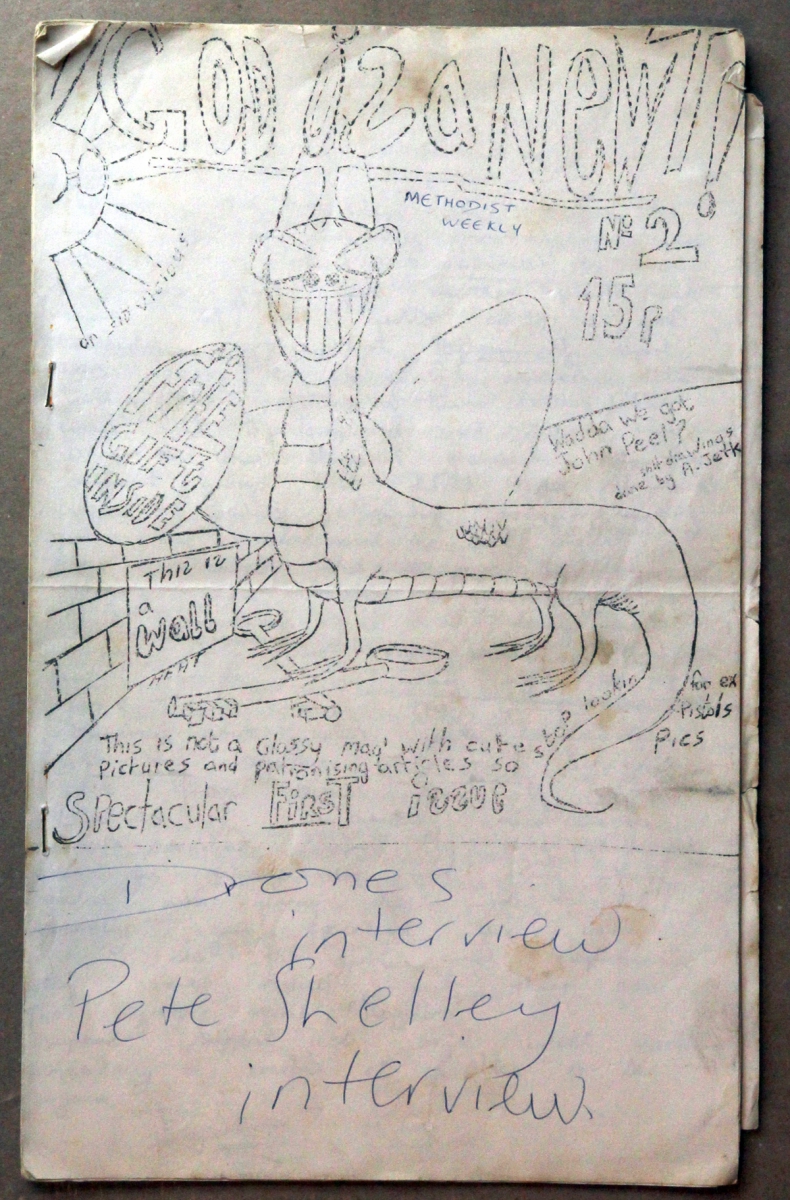 God iz a NewT!
METHODIST
WEEKLY
No 2
15p
on sid vicious
FREE
GIFT
INSIDE
Wadda we got
John Peel?
with drawings
done by A. Jerk
This iz
a
wall
This is not a Glossy mag with cute
pictures and patronising articles so
stop lookin
for ex
Pistols
Pics
Spectacular FirsT izzue
Drones
interview
Pete Shelley
interview